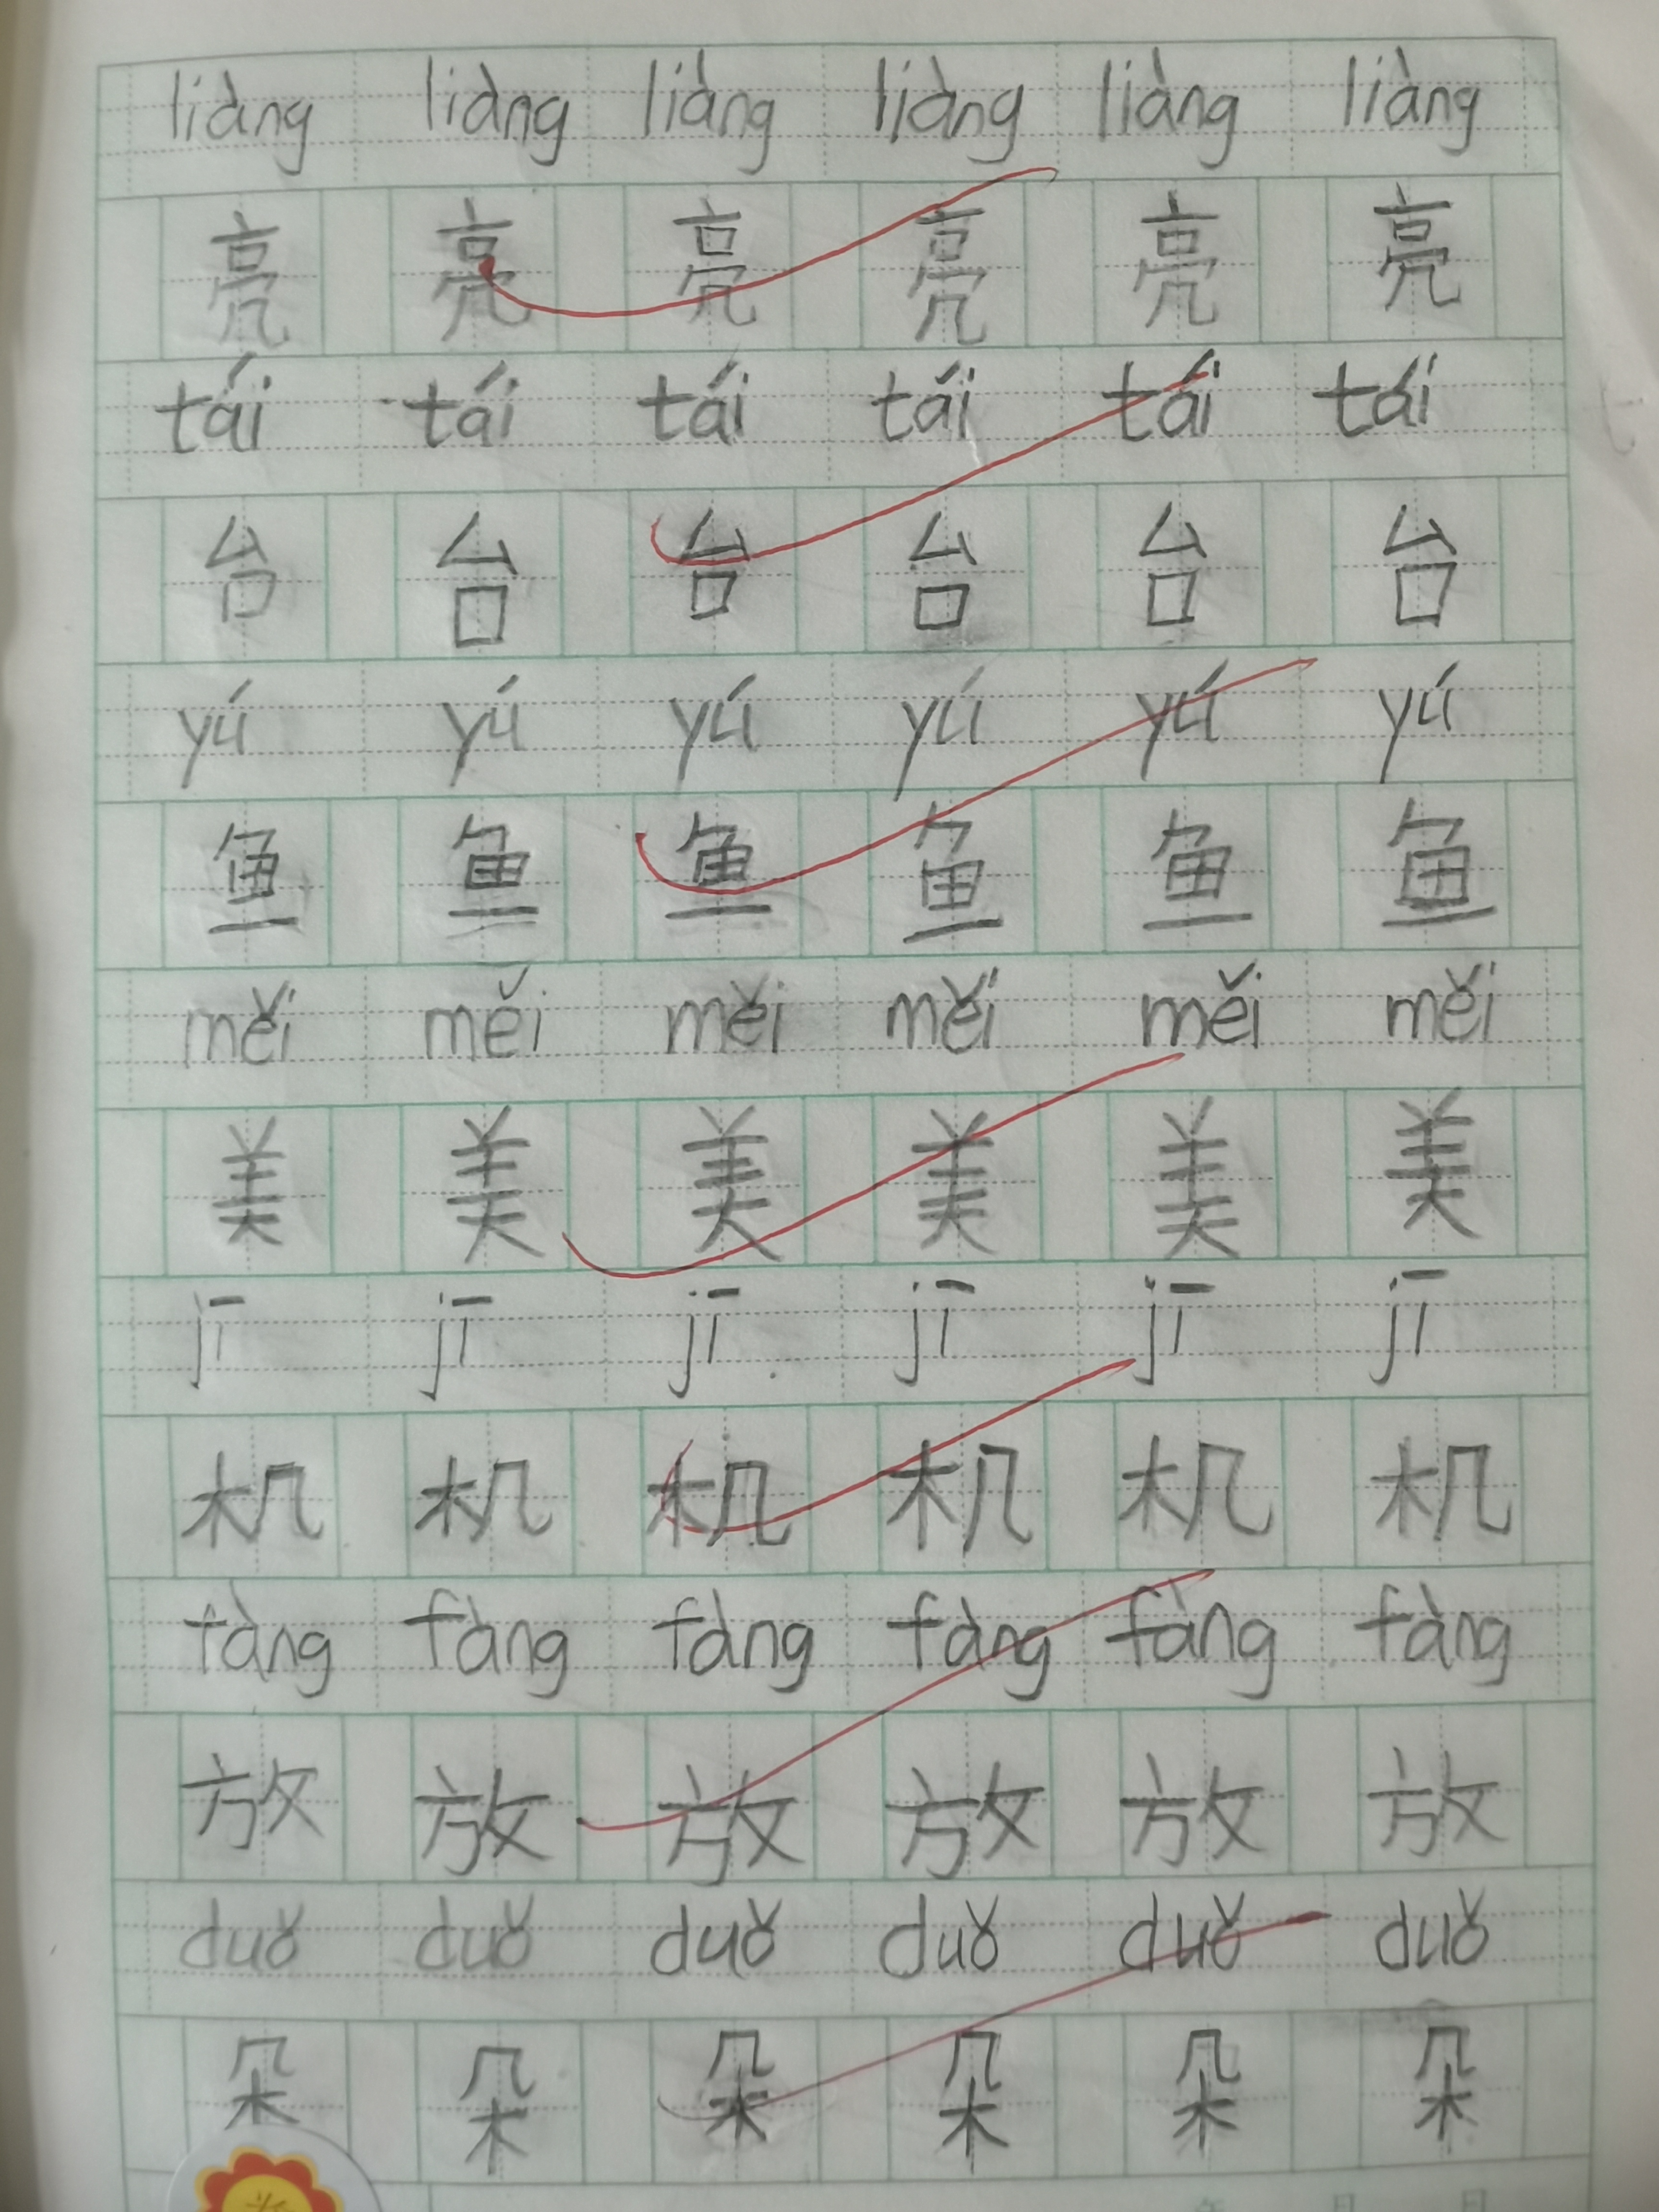 liàng liàng liàng liàng liàng liàng
亮 亮 亮 亮 亮 亮
tái tái tái tái tái tái
台 台 台 台 台 台
yú yú yú yú yú yú
鱼 鱼 鱼 鱼 鱼 鱼
měi měi měi měi měi měi
美 美 美 美 美 美
jī jī jī jī jī jī
机 机 机 机 机 机
fàng fàng fàng fàng fàng fàng
放 放 放 放 放 放
duǒ duǒ duǒ duǒ duǒ duǒ
朵 朵 朵 朵 朵 朵
年 月 日